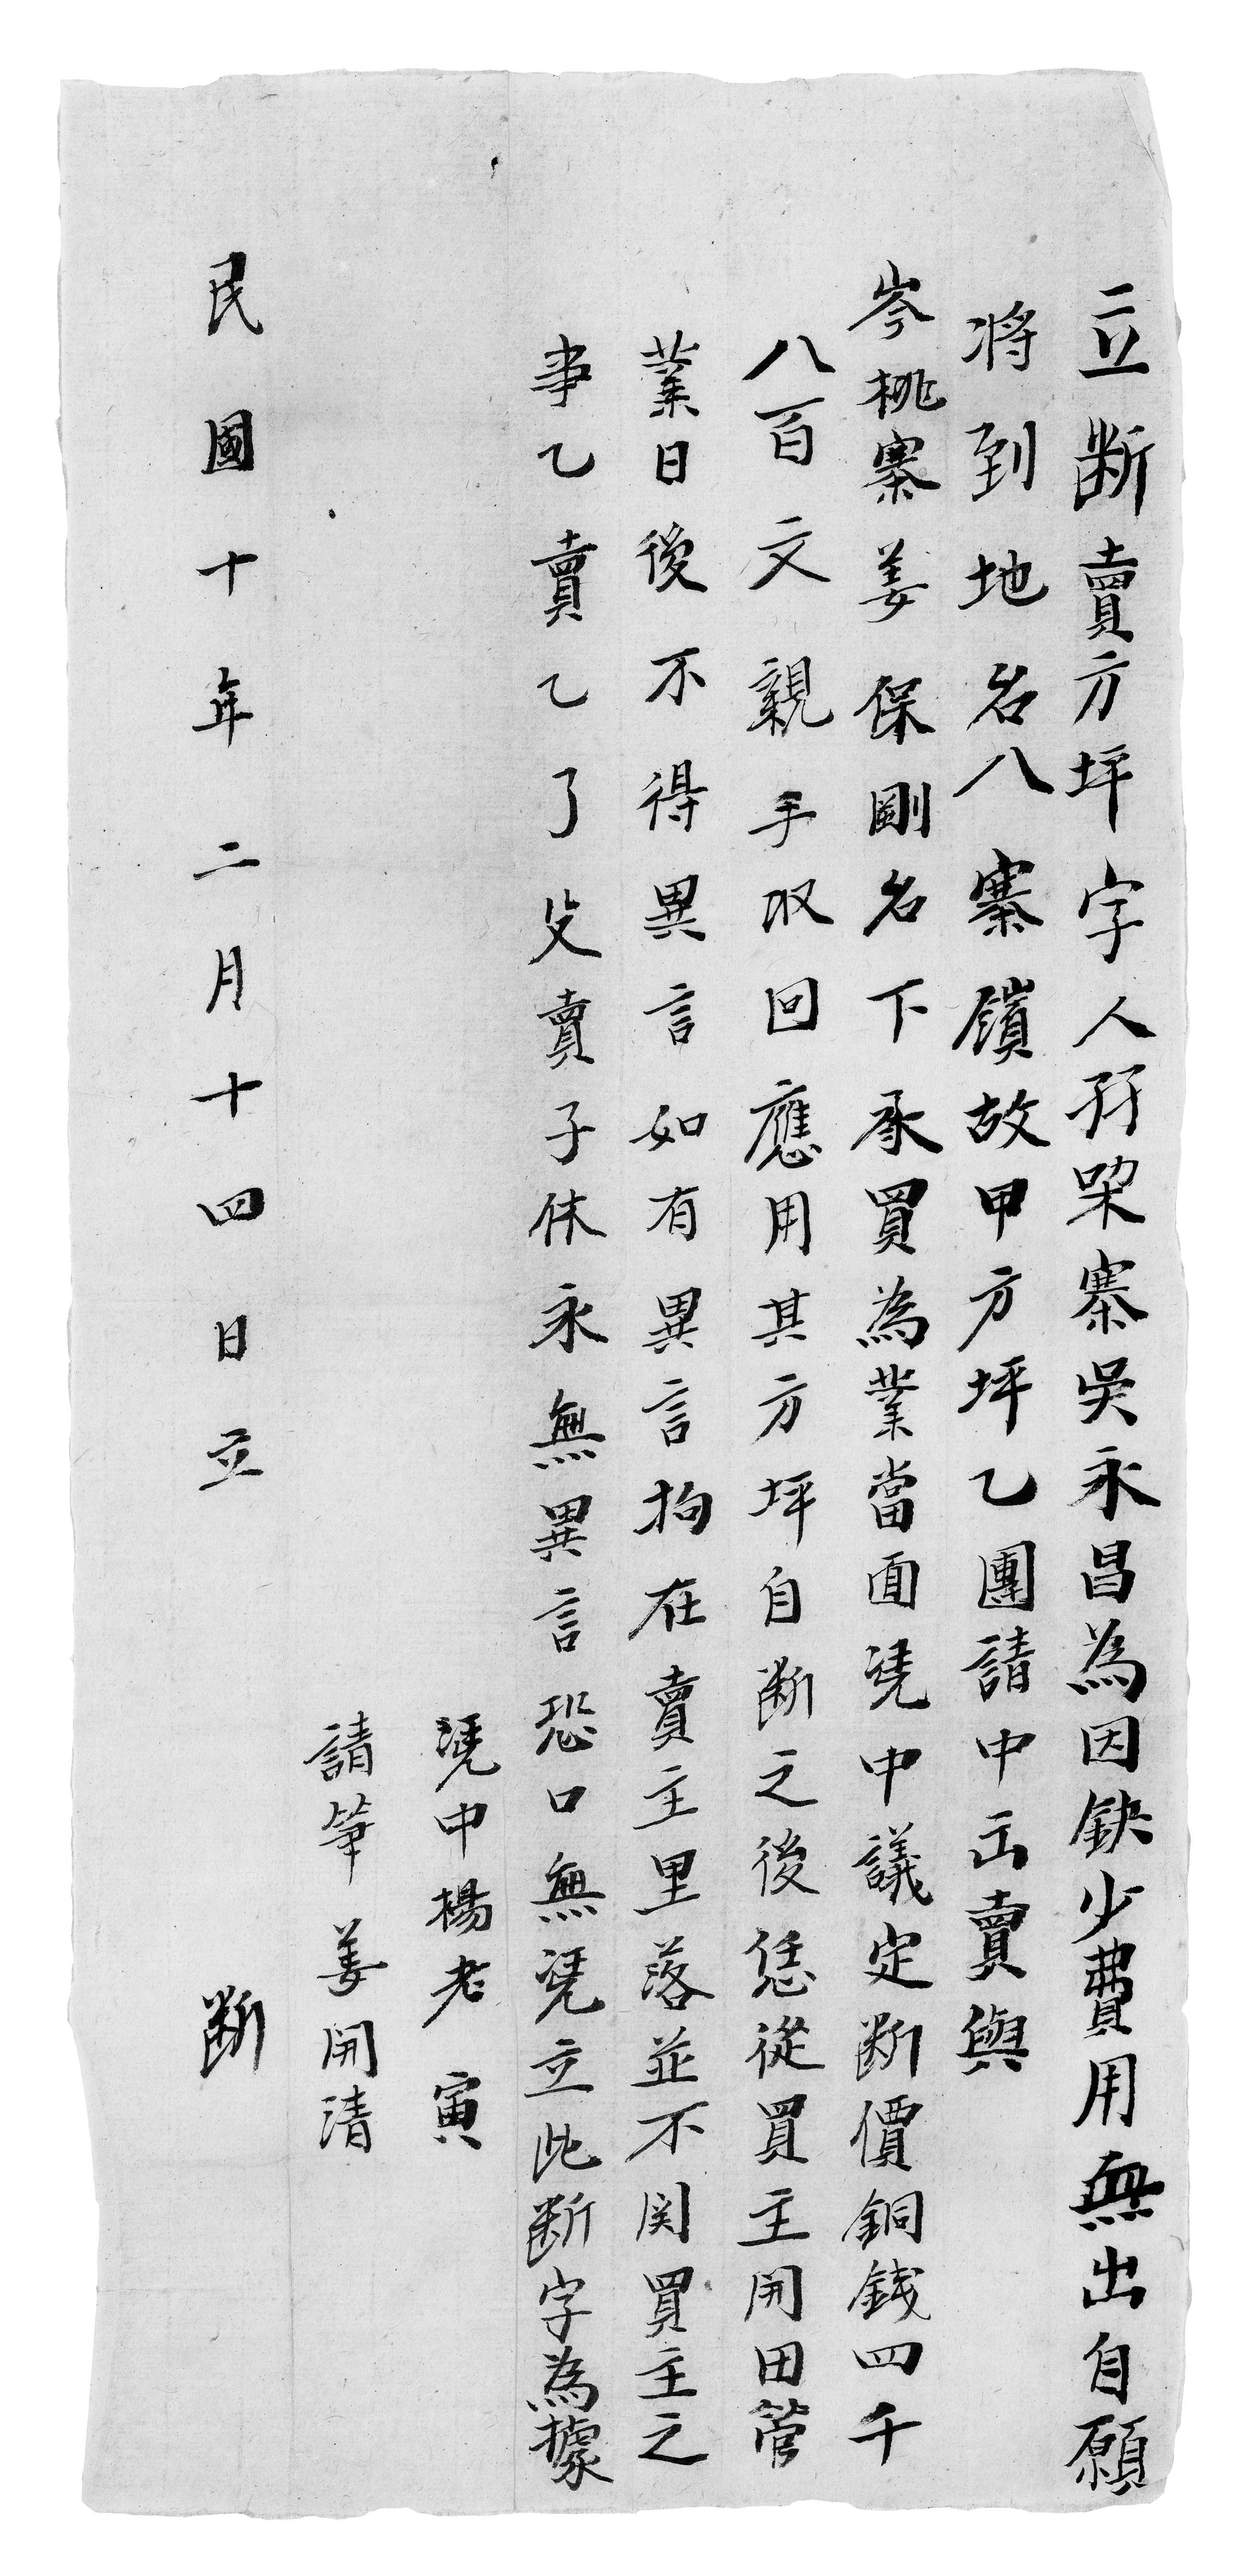 立断賣方坪字人孖㭲寨吳永昌為因鈌少費用無出自願
将到地名八寨嶺故甲方坪乙團請中出賣與
岑桃寨姜保剛名下承買為業當面凴中議定断價銅錢四千
八百文親手收回應用其方坪自断之後恁從買主開田管
業日後不得異言如有異言拘在賣主里落並不関買主之
事乙賣乙了父賣子休永無異言恐口無凴立此断字為據
凴中楊老寅
請筆姜開清
民國十年二月十四日立 断